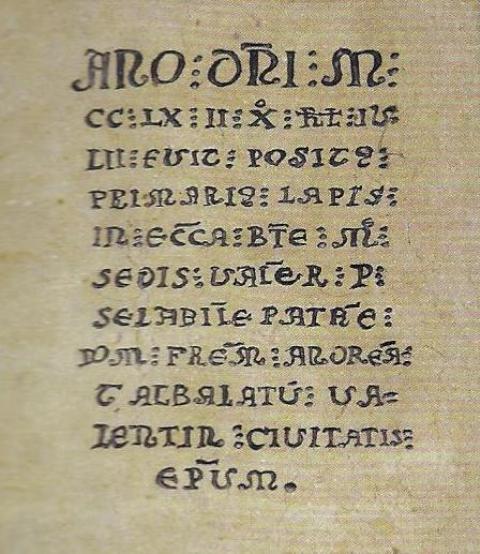 ANO : DÑI : M :
CC : LX : II : X̊ : KL : IV
LII : FUIT : POSIT9 :
PRIMARI9 : LAPIS :
IN : ECCA : BTE : M̊ :
SEDIS : VALER : P :
SELABILE PATRE :
DOM : FREM : ANDREA :
T ALBALATU : VA=
LENTIN : CIVITATIS :
EPUM .